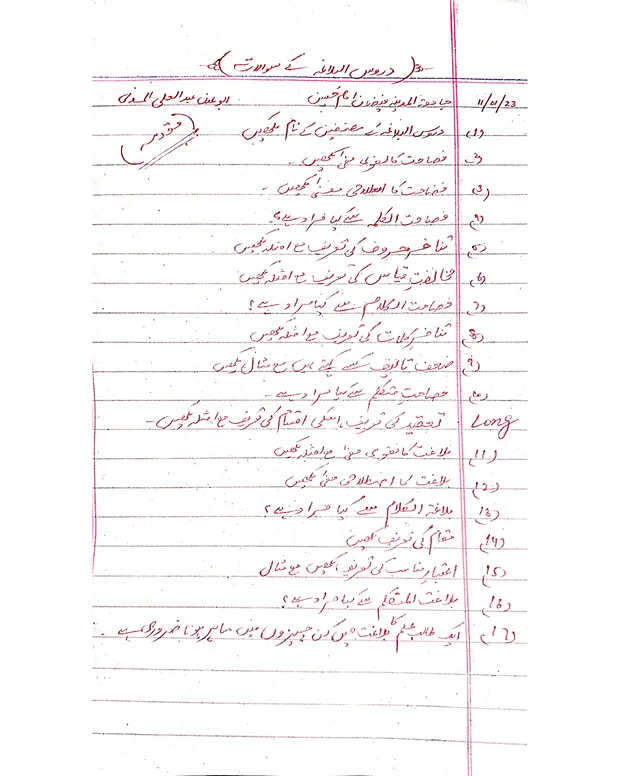 (دروس البلاغہ کے سوالات)
11/11/23 جامعۃ المدینہ فیضان امام حسین ابو عبد العلی السندی
مقدمہ
(1) دروس البلاغہ کے مصنفین کے نام لکھیں
(2) فصاحت کا لغوی معنی لکھیں۔
(3) فصاحت کا اصطلاحی معنی لکھیں۔
(4) فصاحت الکلمہ سے کیا مراد ہے؟
(5) تنافر حروف کی تعریف مع امثلہ لکھیں
(6) مخالفت قیاس کی تعریف مع امثلہ لکھیں
(7) فصاحت الکلام سے کیا مراد ہے؟
(8) تنافر کلمات کی تعریف مع امثلہ لکھیں
(9) ضعف تالیف کسے کہتے ہیں مع مثال لکھیں
(10) فصاحت متکلم سے کیا مراد ہے۔
Long تعقید کی تعریف، اسکی اقسام کی تعریف مع امثلہ لکھیں۔
(11) بلاغت کا لغوی معنی مع امثلہ لکھیں
(12) بلاغت کا اصطلاحی معنی لکھیں
(13) بلاغۃ الکلام سے کیا مراد ہے؟
(14) مقام کی تعریف لکھیں
(15) اعتبار مناسب کی تعریف لکھیں مع مثال
(16) بلاغت المتکلم سے کیا مراد ہے؟
(17) ایک طالب علم کا بلاغت میں کن چیزوں میں ماہر ہونا ضروری ہے۔